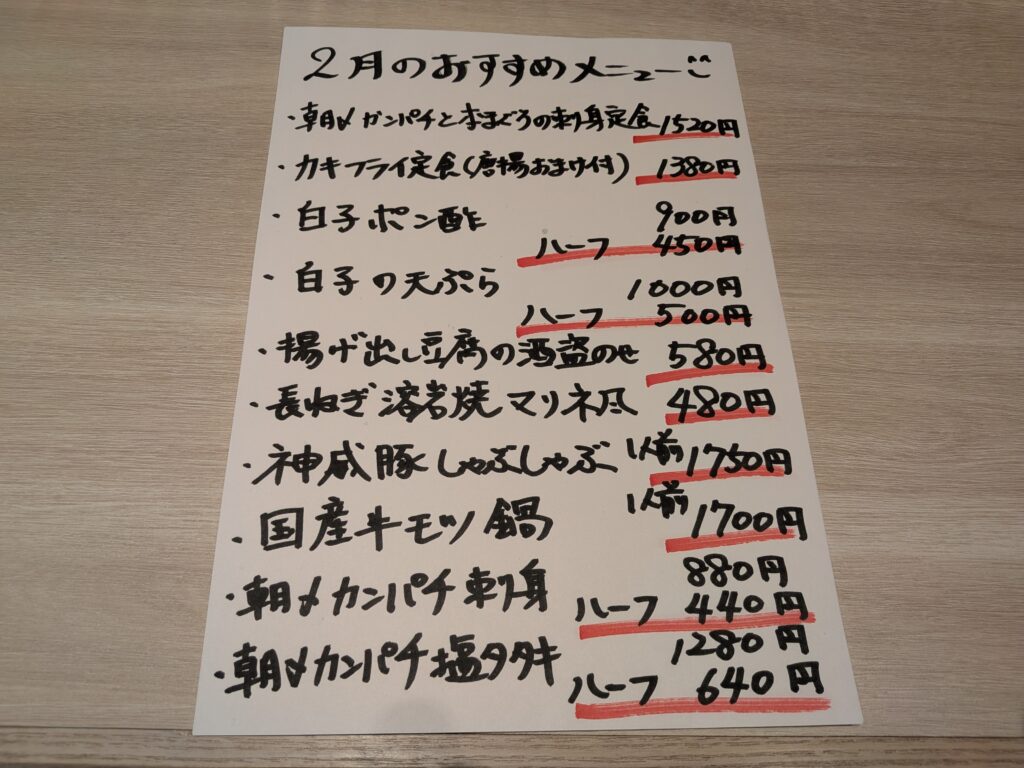 2月のおすすめメニュー
・朝〆カンパチと本まぐろの刺身定食 1520円
・カキフライ定食(唐揚おまけ付) 1380円
・白子ポン酢 900円
ハーフ 450円
・白子の天ぷら 1000円
ハーフ 500円
・揚げ出し豆腐の酒盗のせ 580円
・長ねぎ溶岩焼マリネ風 480円
・神威豚しゃぶしゃぶ 1人前 1750円
・国産牛モツ鍋 1人前 1700円
・朝〆カンパチ刺身 880円
ハーフ 440円
・朝〆カンパチ塩タタキ 1280円
ハーフ 640円